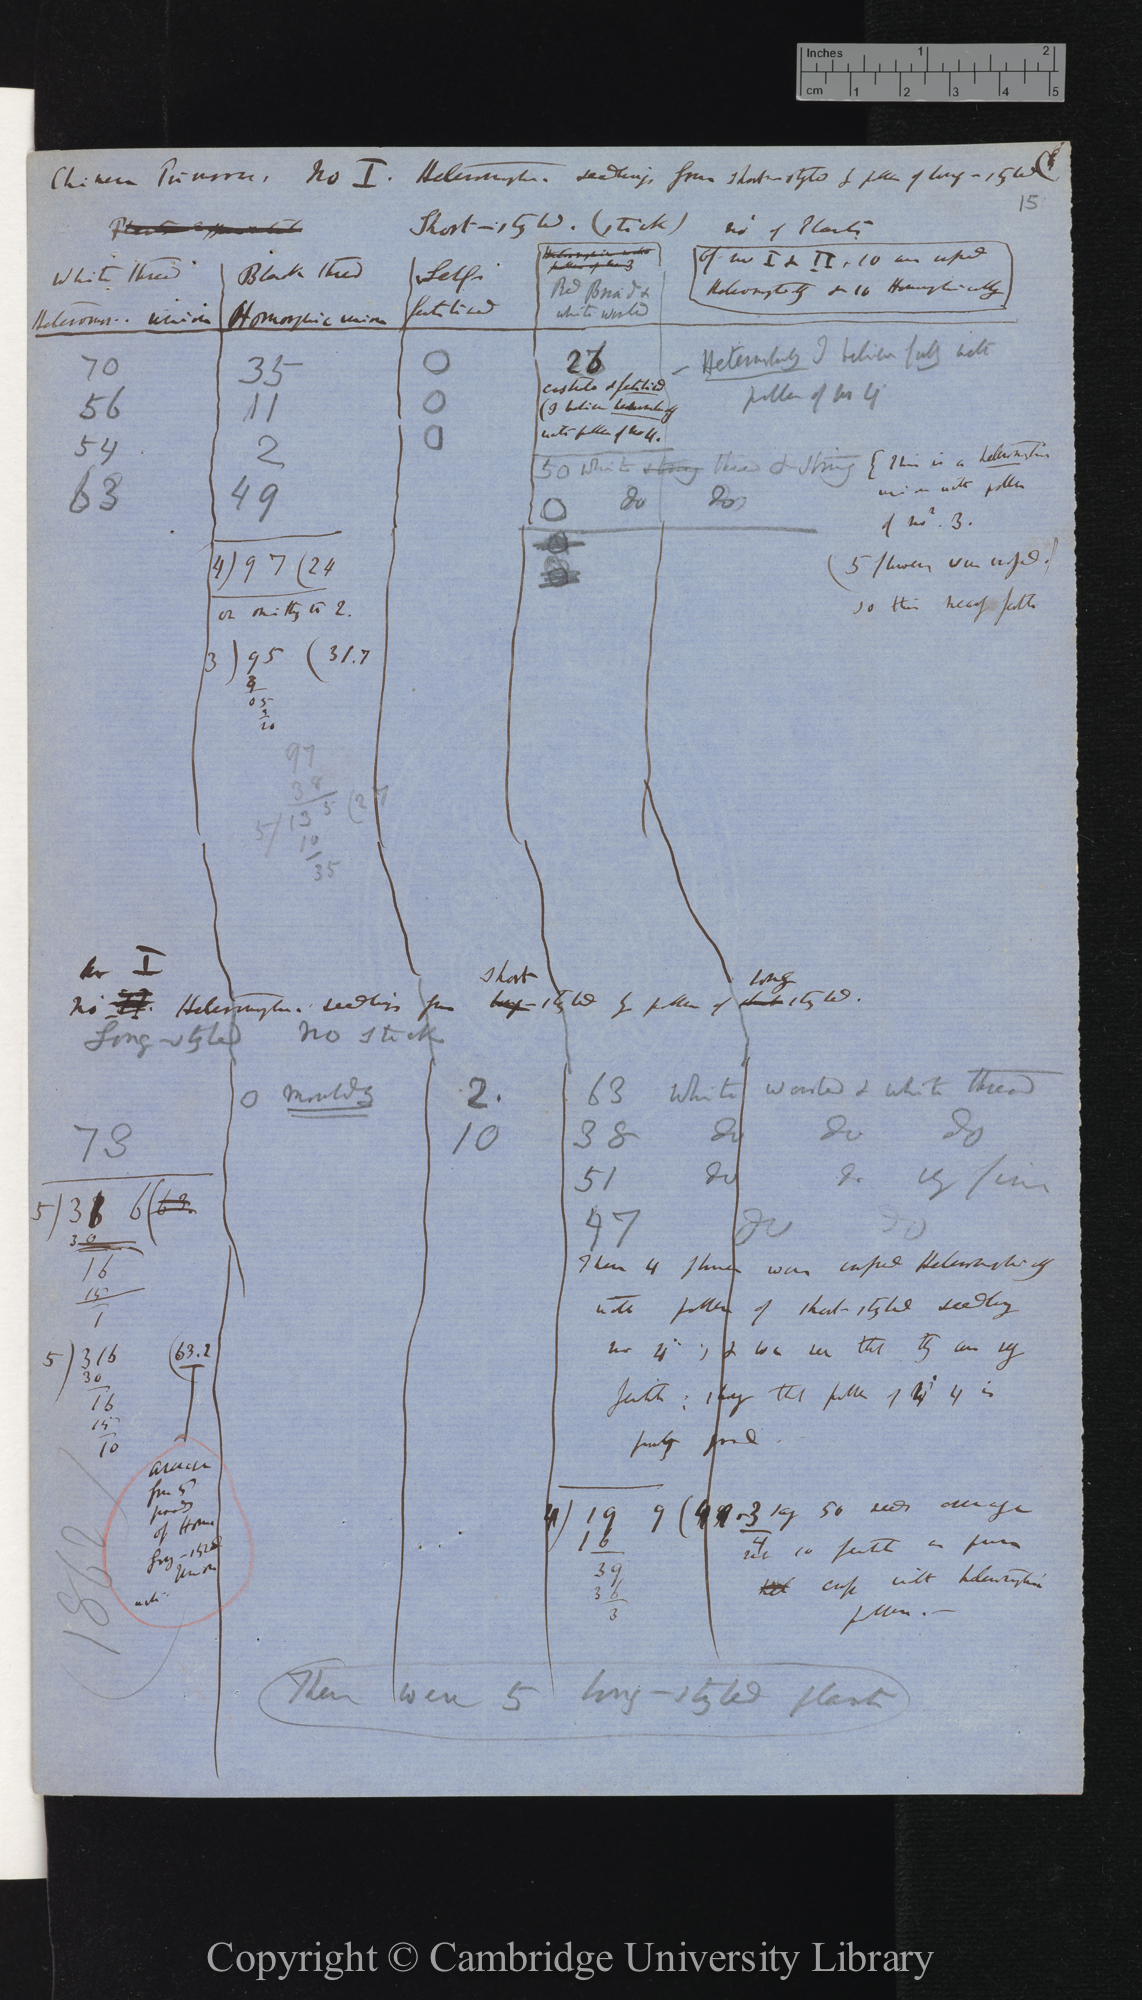 Inches 1 2
cm 1 2 3 4 5
Chinese Primrose. No I. Heteromorphic seedlings from short-styled & pollen of long-styled
15
Short-styled. (stick) no of Plants
White thred
Heteromor.. union
Black thred
Homorphic union
Self
fertilised
Red Braid &
white worsted
of no I & II, 10 were crossed
Heteromorphically & 10 Homomorphically
70 35 0 26 — Heteromorphically I believe fully with
pollen of no 4
56 11 0
castrated & fertilised
(I believe heteromorphically
with pollen of no 4.
54 2 0
50 White thread & string { This is a heteromorphic
union with pollen
of no. 3.
63 49 0 do do
4) 97 (24
(5 flowers were crossed)
or omitting to 2.
so this nearly fertile
3) 95 (31.7
9
05
3
20
97
38
5/135 (27
10
35
no I
short long
no II. Heteromorphic seedlings from long-styled by pollen of short styled.
Long-styled No stick
0 mouldy 2. 63 White worsted & white thread
73 10 38 do do do
51 do do
5) 316 (63
47 do do
30
16
15
1
These 4 flowers were crossed Heteromorphically
with pollen of short-styled seedling
no 4; & we see that they are
fertile; that the pollen of no 4 is
good.
5) 316 (63.2
30
16
15
10
average
from 5
pods
of Homo
long-styled
Union
4) 199 (49.3/4 say 50 seeds average
16
39
36
3
so fertile as pure
cross with heteromorphic
pollen.—
1862
There were 5 long-styled plants
Copyright © Cambridge University Library